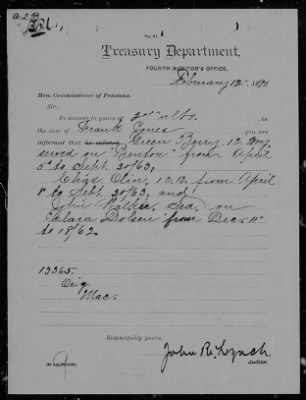 No. 61
Treasury Department,
FOURTH AUDITOR'S OFFICE,
February 12", 1890.
Hon. Commissioner of Pensions.
Sir:
In answer to yours of 20" ulto., in
the case of Frank Jones, you are
informed that Green Berry, 12
served on "Benton" from April
5" to Sept. 30/63;
Chas. Olin, 1.C.B. from April
1" to Sept. 30/63, and
John Walker, Sea. on
"Clara Dolsen" from Dec. 1"
to 18/62.
13365.
Orig
Mac.
Respectfully yours,
John R. Lynch,
Auditor.